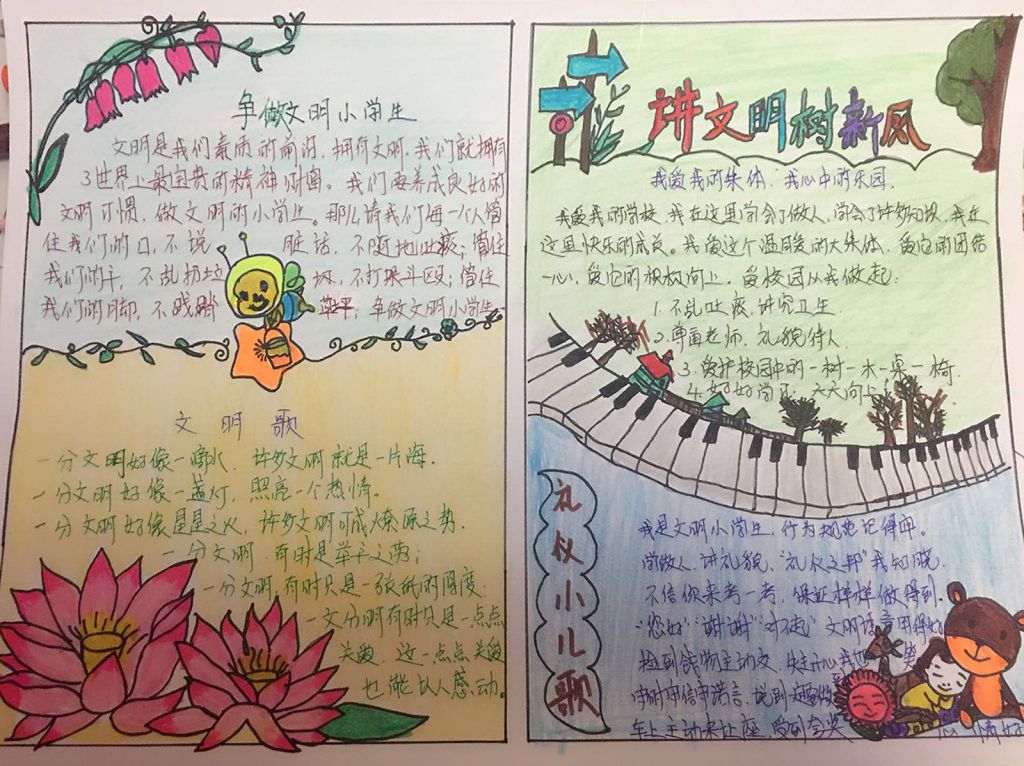 争做文明小学生
文明是我们素质的前沿，拥有文明，我们就拥有
了世界上最宝贵的精神财富。我们要养成良好的
文明习惯，做文明的小学生。那么请我们每一个人管
住我们的口，不说脏话，不随地吐痰；管住
我们的手，不乱扔垃圾，不打架斗殴；管住
我们的脚，不践踏草坪；争做文明小学生
文明歌
一分文明好像一滴水，许多文明就是一片海。
一分文明好像一盏灯，照亮一个热情。
一分文明好像星星之火，许多文明可成燎原之势.
一分文明，有时是举手之劳；
一分文明，有时只是一张纸的厚度；
一文分明有时只是一点点
关爱，这一点点关爱
也能让人感动。
讲文明树新风
我爱我的集体，我心中的乐园.
我爱我的学校，我在这里学会了做人，学会了许多知识，我在
这里快乐的成长。我爱这个温暖的大集体，爱它的团结
一心，爱它的积极向上。爱校园从我做起：
1.不乱吐痰，讲究卫生
2.尊重老师，礼貌待人
3.爱护校园中的一树一木一桌一椅.
4.好好学习，天天向上
礼仪小儿歌
我是文明小学生，行为规范记得牢。
学做人，讲礼貌，“礼仪之邦”我知晓.
不信你来考一考，保证样样做得到.
“您好”“谢谢”“对不起”文明语言用得好
捡到钱物主动交，失主开心我
守时守信守诺言，说到做
车上主动来让座，受到夸奖心情好